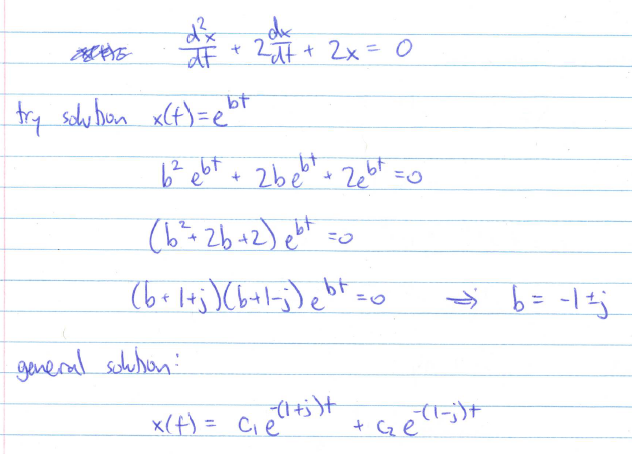 d²x/dt + 2dx/dt + 2x = 0
try solution x(t)=e^{bt}
b² e^{bt} + 2be^{bt} + 2e^{bt} =0
(b²+2b+2) e^{bt} =0
(b+1+j)(b+1-j) e^{bt} =0 ⇒ b = -1±j
general solution:
x(t) = c₁e^{-(1+j)t} + c₂e^{-(1-j)t}